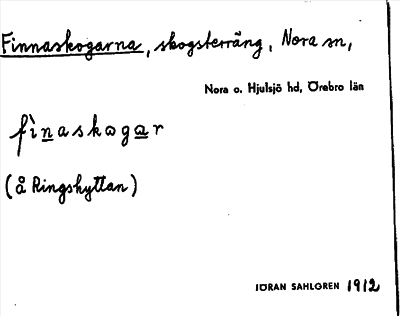 Finnaskogarna, skogsterräng, Nora sn,
Nora o. Hjulsjö hd, Örebro län
fìnaskogar
(å Ringshyttan)
JÖRAN SAHLGREN 1912